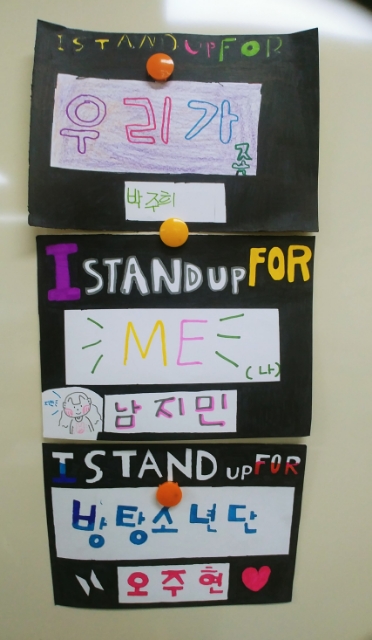 I STAND UP FOR
우리가
족
박주희
I STAND UP FOR
ME
(나)
남지민
I STAND UP FOR
방탄소년단
오주현